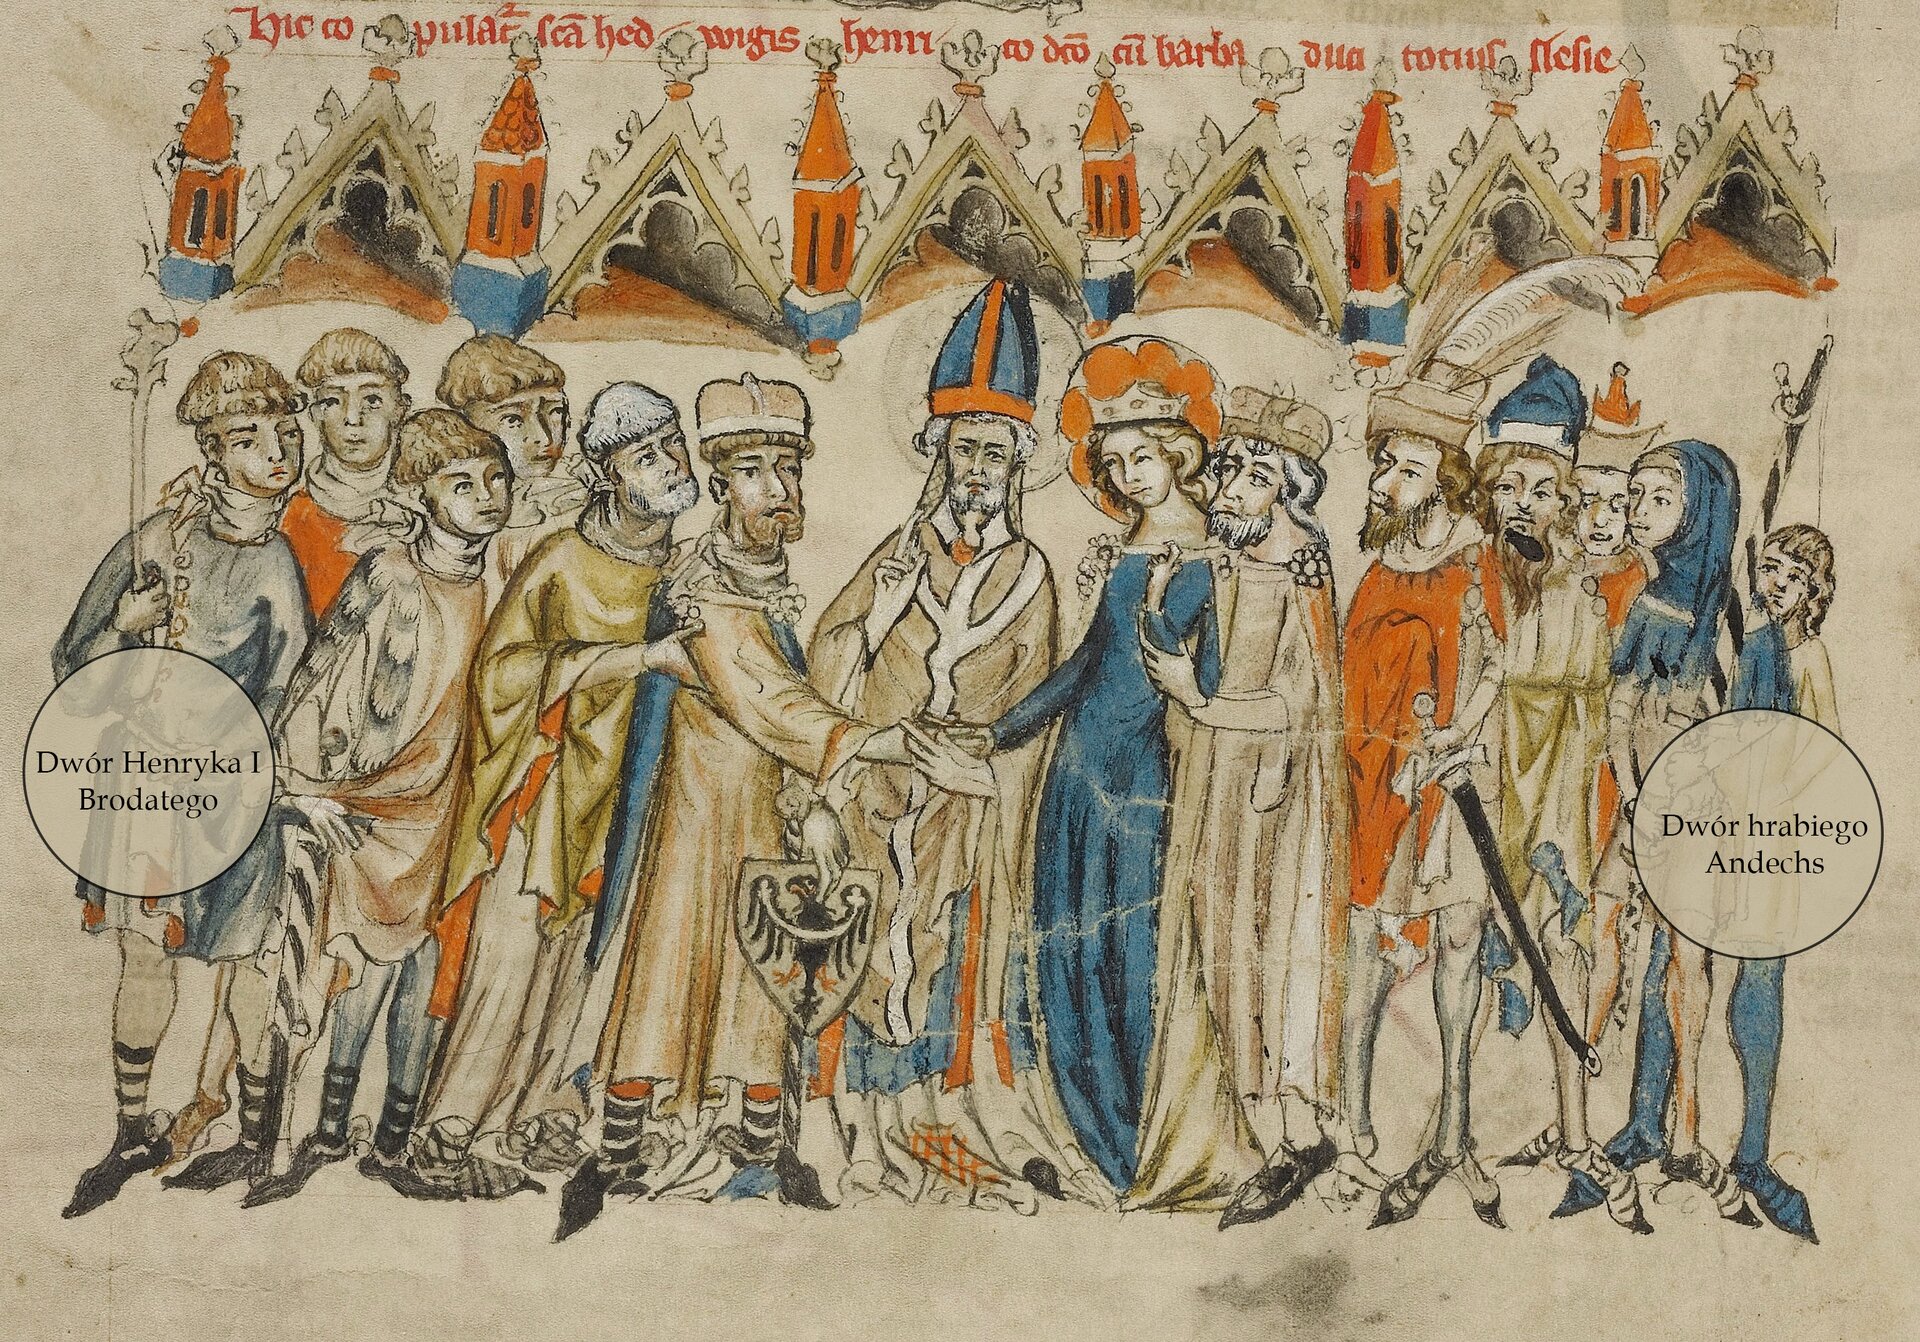 Hic co pulat² scā hed wigis henri co dc̄o cū barba duci totius slesie
Dwór Henryka I
Brodatego
Dwór hrabiego
Andechs